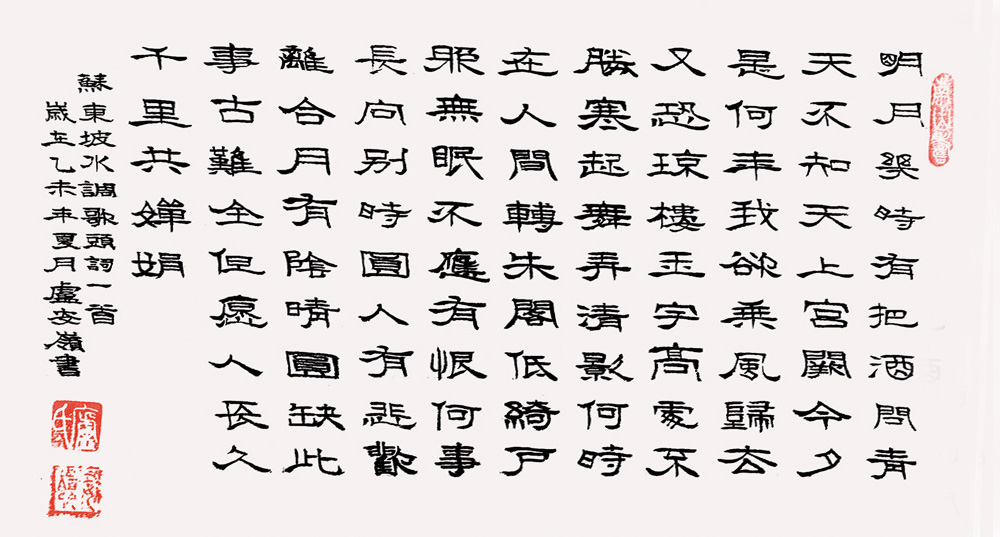 明月幾時有把酒問青
天不知天上宮闕今夕
是何年我欲乘風歸去
又恐琼樓玉宇高處不
勝寒起舞弄清影何時
在人間轉朱閣低綺戶
邪無眠不應有恨何事
長向别時圓人有悲歡
離合月有陰晴圓缺此
事古難全但愿人長久
千里共嬋娟
蘇東坡水調歌頭詞一首
歲在乙未年夏月盧安嶺書